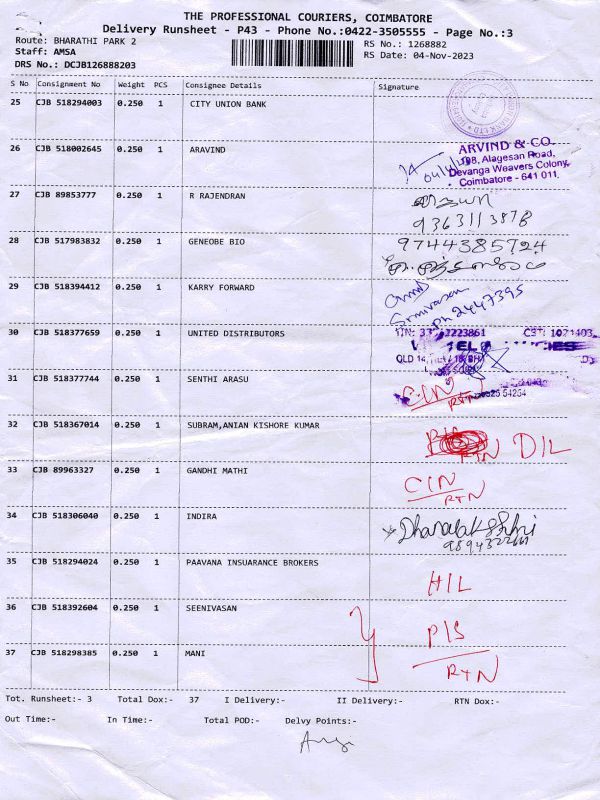 THE PROFESSIONAL COURIERS, COIMBATORE
Delivery Runsheet - P43 - Phone No.:0422-3505555 - Page No.:3
Route: BHARATHI PARK 2
RS No.: 1268882
Staff: AMSA
RS Date: 04-Nov-2023
DRS No.: DCJB126888203
S No Consignment No Weight PCS Consignee Details Signature
25 CJB 518294003 0.250 1 CITY UNION BANK
26 CJB 518002645 0.250 1 ARAVIND
ARVIND & CO.
198, Alagesan Road,
Devanga Weavers Colony,
Coimbatore - 641 011.
27 CJB 89853777 0.250 1 R RAJENDRAN
9363113878
28 CJB 517983832 0.250 1 GENEOBE BIO 9744385724
29 CJB 518394412 0.250 1 KARRY FORWARD
Srinivasan
ph 2447395
30 CJB 518377659 0.250 1 UNITED DISTRIBUTORS
31 CJB 518377744 0.250 1 SENTHI ARASU
CIN
RTN
32 CJB 518367014 0.250 1 SUBRAM,ANIAN KISHORE KUMAR
RTN D/L
33 CJB 89963327 0.250 1 GANDHI MATHI
CIN
RTN
34 CJB 518306040 0.250 1 INDIRA
35 CJB 518294024 0.250 1 PAAVANA INSUARANCE BROKERS
H/L
36 CJB 518392604 0.250 1 SEENIVASAN
P/S
RTN
37 CJB 518298385 0.250 1 MANI
Tot. Runsheet:- 3 Total Dox:- 37 I Delivery:- II Delivery:- RTN Dox:-
Out Time:- In Time:- Total POD:- Delvy Points:-